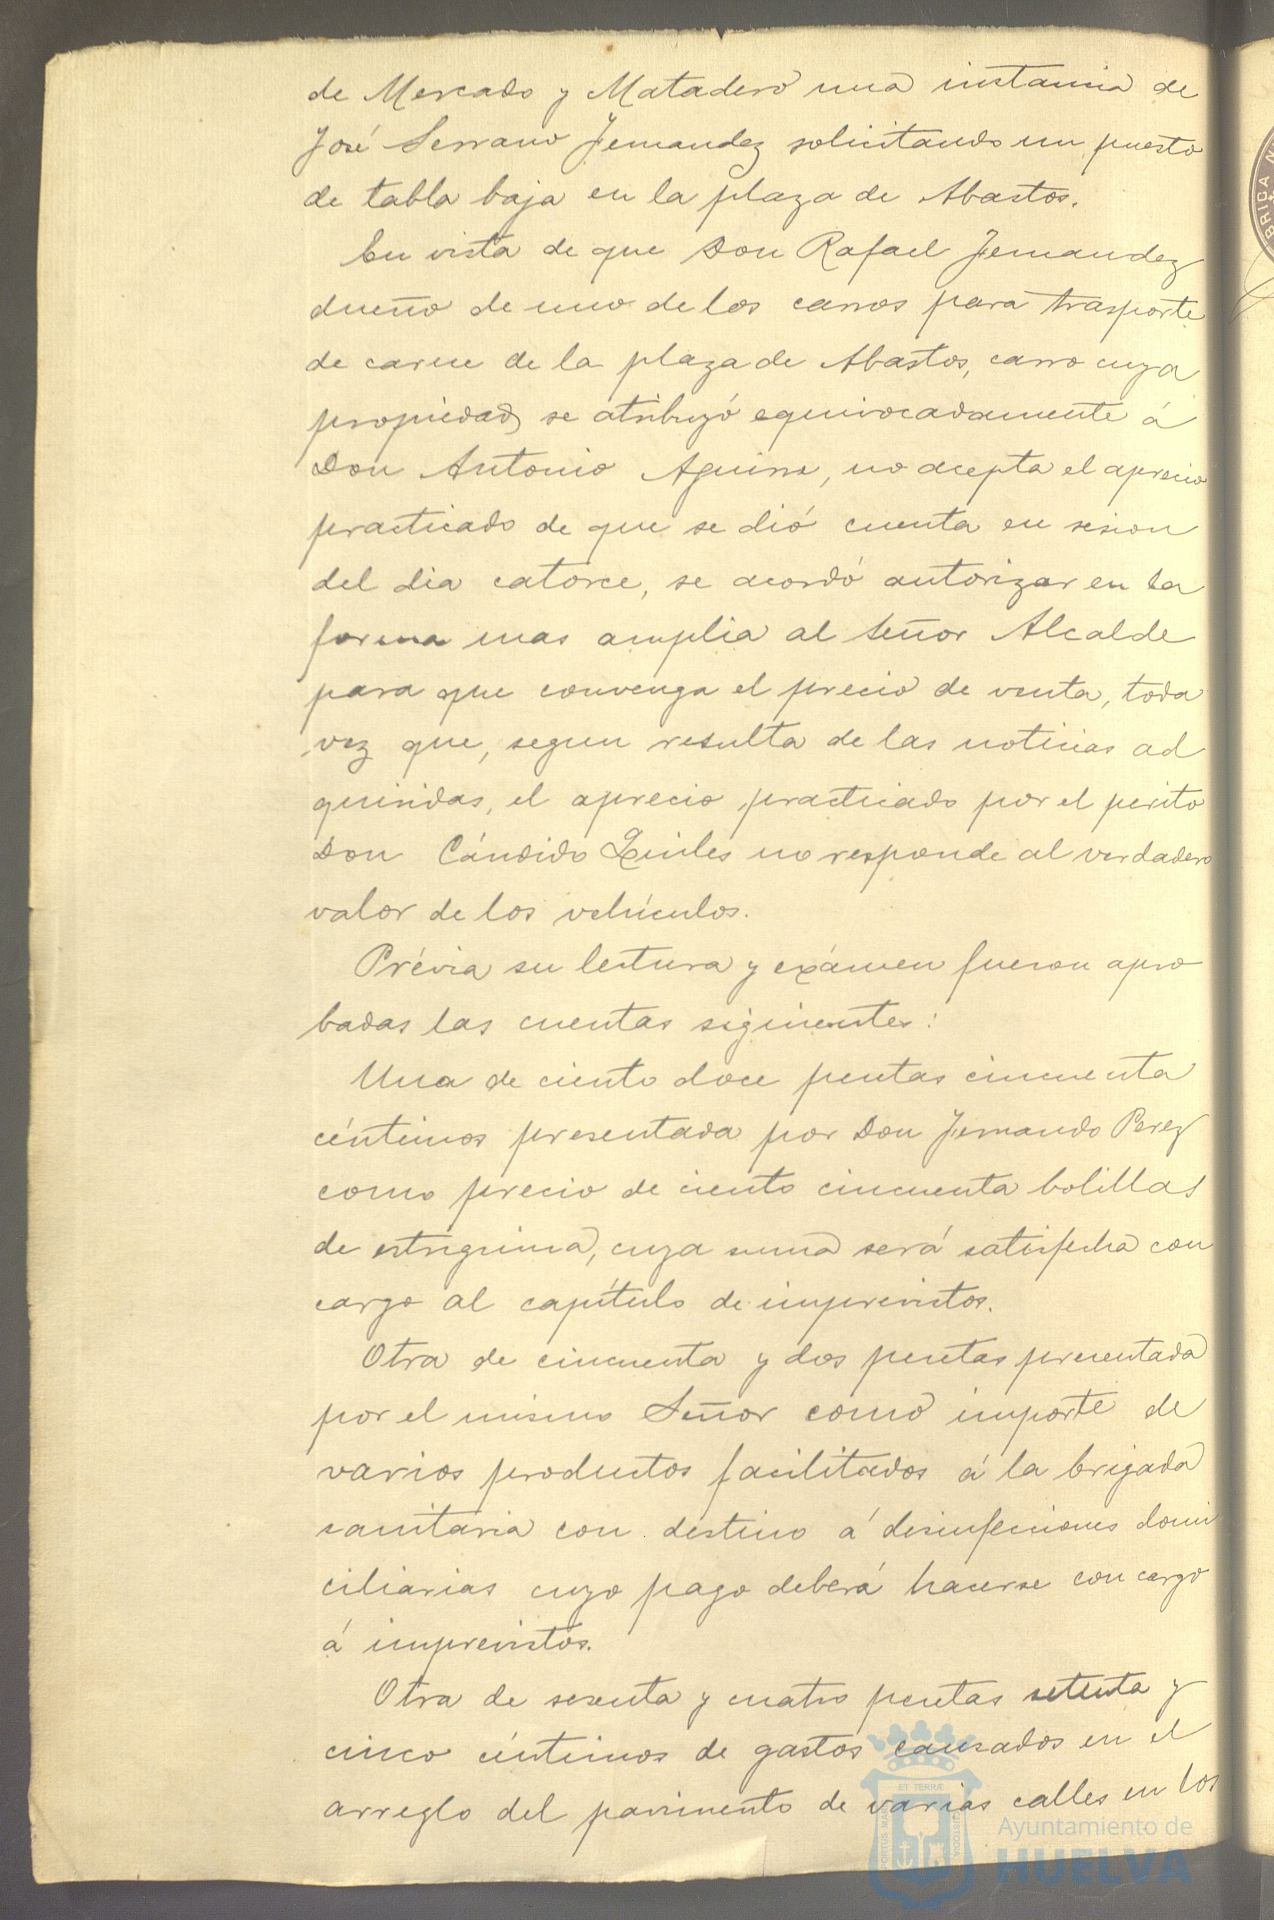 de Mercado y Matadero una instancia de
José Serrano Fernandez solicitando un puesto
de tabla baja en la plaza de Abastos.
En vista de que Don Rafael Fernandez
dueño de uno de los carros para trasporte
de carne de la plaza de Abastos, carro cuya
propiedad se atribuyó equivocadamente á
Don Antonio Aguirre, no acepta el aprecio
practicado de que se dió cuenta en sesion
del dia catorce, se acordó autorizar en la
forma mas amplia al Señor Alcalde
para que convenga el precio de venta, toda
vez que, segun resulta de las noticias ad
quiridas, el aprecio practicado por el perito
Don Cándido Quiles no responde al verdadero
valor de los vehículos.
Prévia su lectura y exámen fueron apro
badas las cuentas siguientes:
Una de ciento doce pesetas cincuenta
céntimos presentada por Don Fernando Perez
como precio de ciento cincuenta bolillas
de estrignina, cuya suma será satisfecha con
cargo al capítulo de imprevistos.
Otra de cincuenta y dos pesetas presentada
por el mismo Señor como importe de
varios productos facilitados á la brigada
sanitaria con destino á desinfecciones domi
ciliarias cuyo pago deberá hacerse con cargo
á imprevistos.
Otra de sesenta y cuatro pesetas setenta y
cinco céntimos de gastos causados en el
arreglo del pavimento de varias calles en los
Ayuntamiento de
HUELVA
PORTUS MARIS
ET TERRÆ
CUSTODIA
BRIGA N